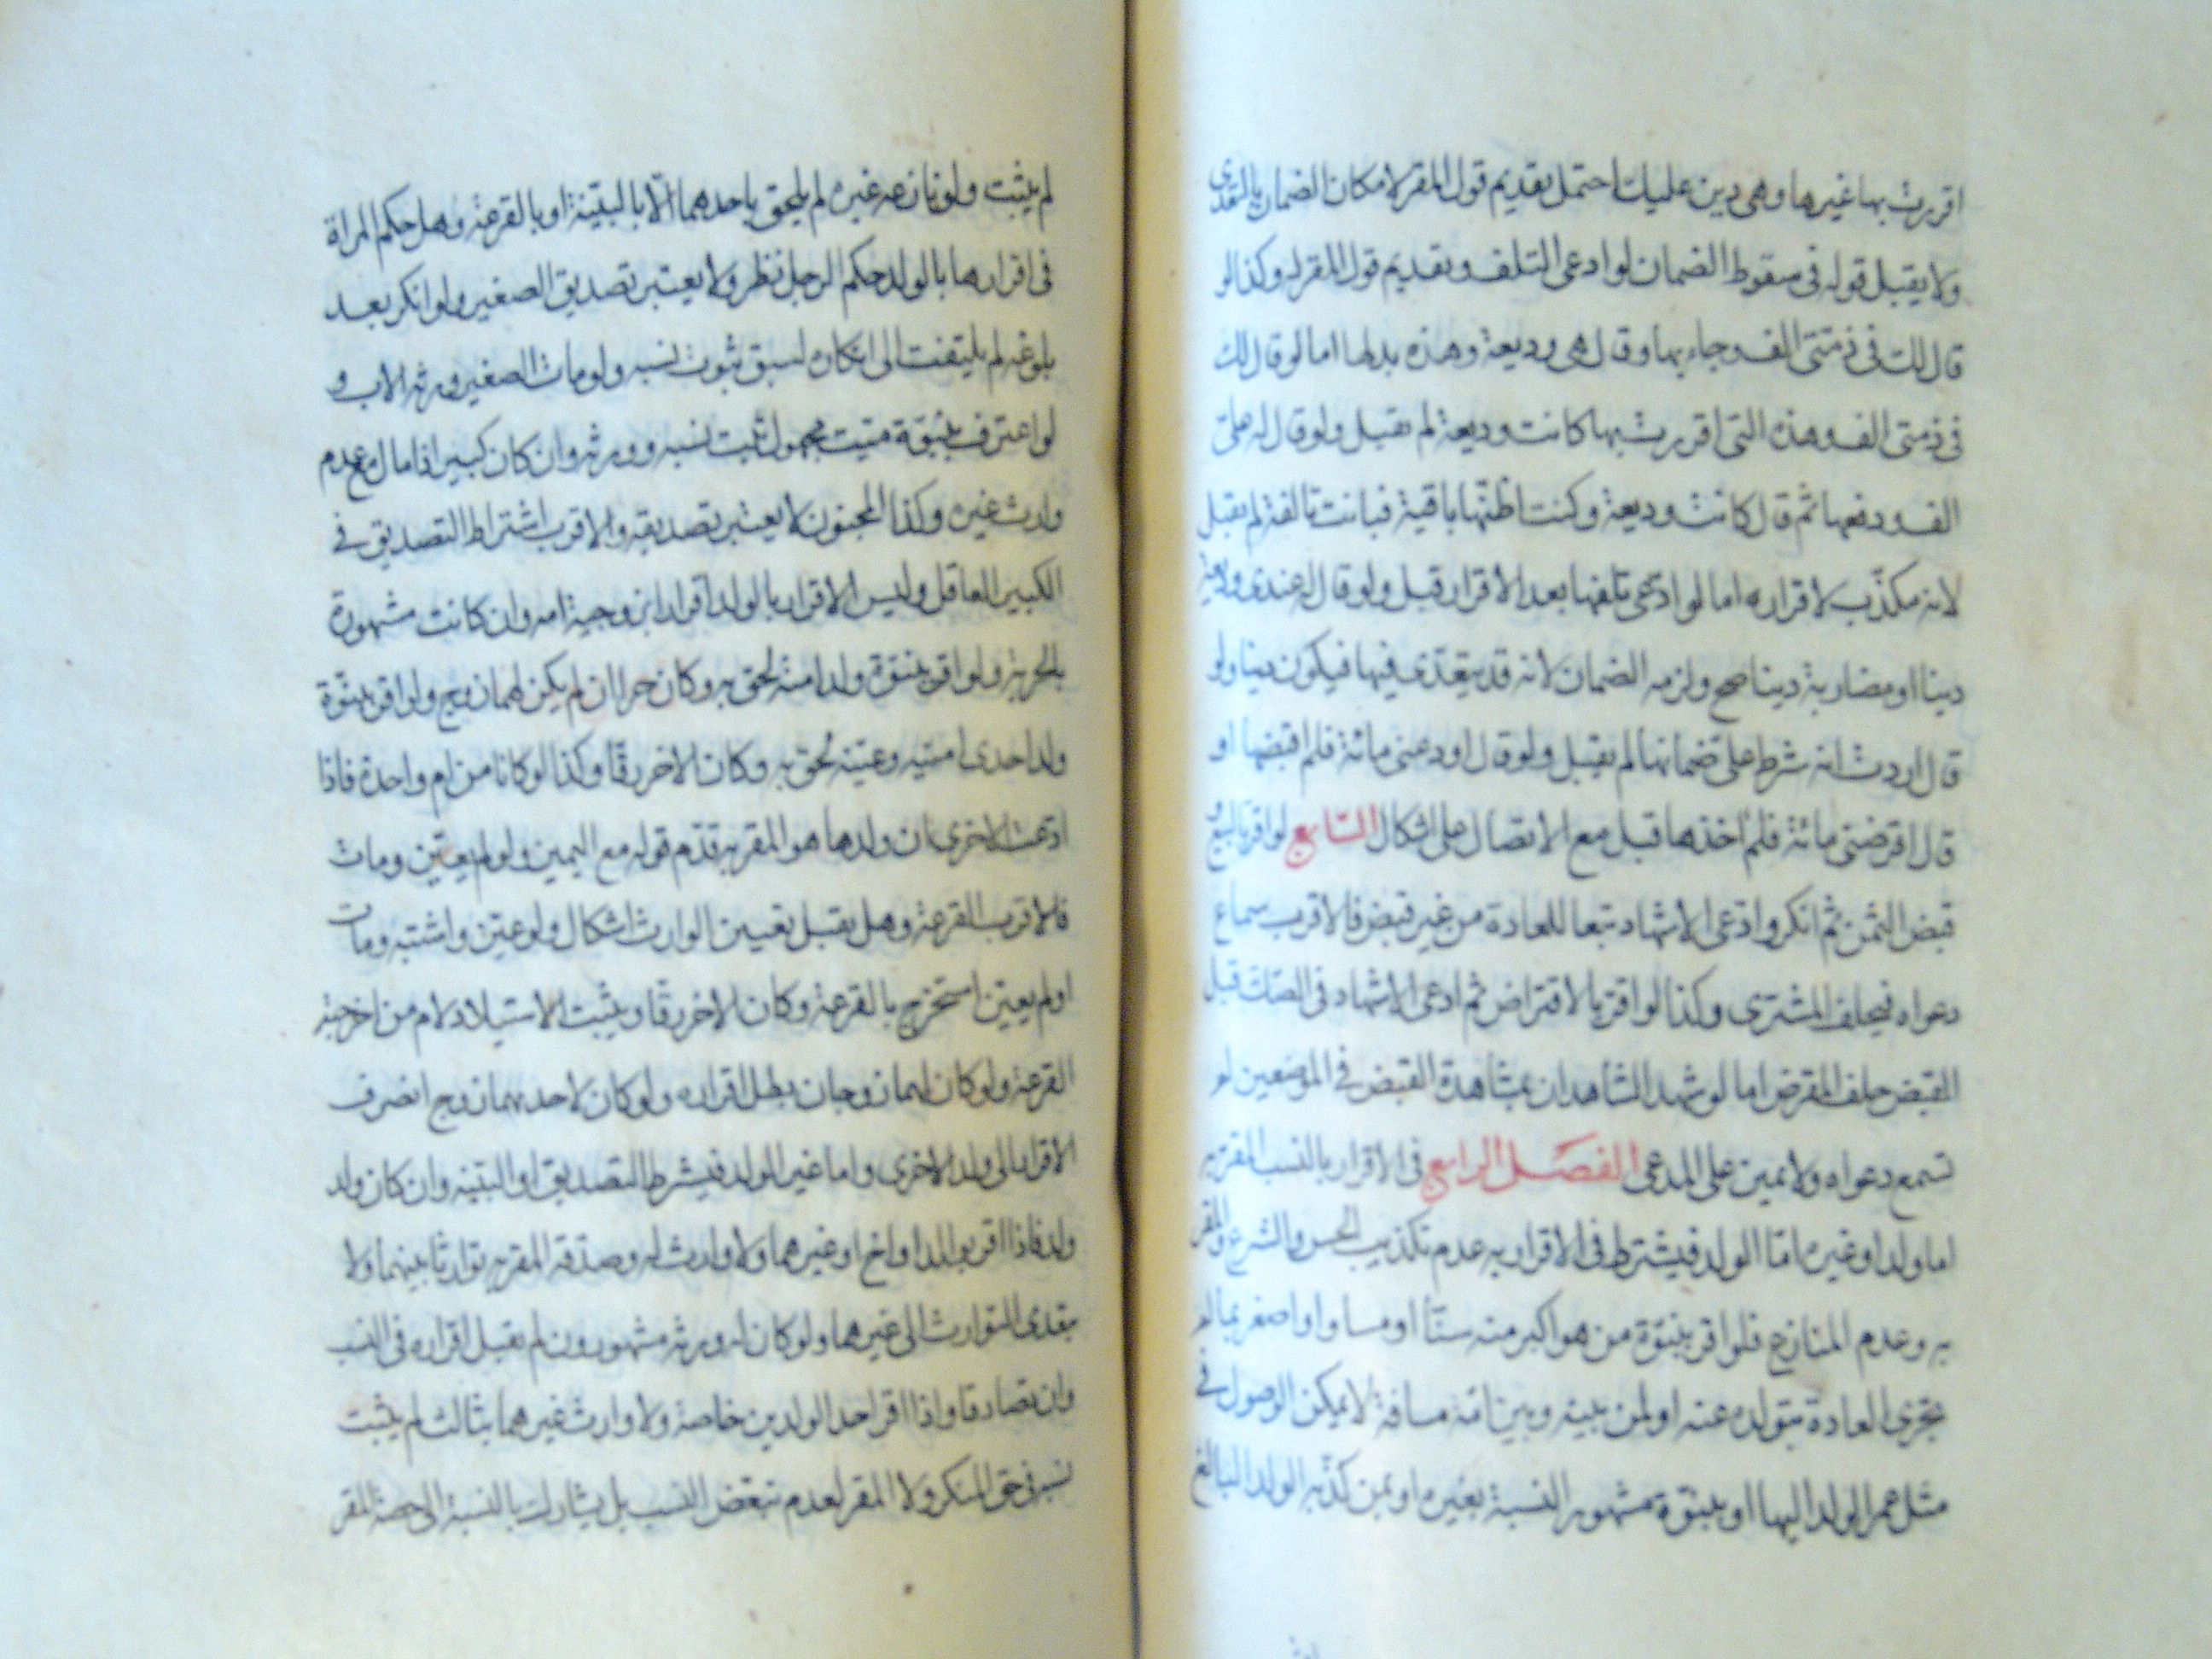 اقررت بها غيرها وهى دين عليك احتمل تقديم قول المقر لامكان الضمان بالتعدى
ولا يقبل قوله فى سقوط الضمان لو ادعى التلف وتقديم قول المقر له وكذا لو
قال لك فى ذمتى الف وجاء بها وقال هى وديعة وهذه بدلها اما لو قال لك
فى ذمتى الف وهذه التى اقررت بها كانت وديعة لم يقبل ولو قال له على
الف ودفعها ثم قال كانت وديعة وكنت اظنها باقية فبانت تالفة لم يقبل
لانه مكذب لاقراره اما لو ادعى تلفها بعد الاقرار قبل ولو قال له عندى وديعة
دينا او مضاربة دينا صح ولزمه الضمان لانه قد يتعدى فيها فيكون دينا ولو
قال اردت انه شرط على ضمانها لم يقبل ولو قال اودعنى مائة فلم اقبضها او
قال اقرضنى مائة فلم اخذها قبل مع الاتصال على اشكال السابع لو اقر بالبيع و
قبض الثمن ثم انكر وادعى الاشهاد تبعا للعادة من غير قبض فالاقرب سماع
دعواه فيحلف المشترى وكذا لو اقر بالاقتراض ثم ادعى الاشهاد فى الصك قبل
القبض حلف المقرض اما لو شهد الشاهدان بمشاهدة القبض فى الموضعين لم
تسمع دعواه ولا يمين على المدعى الفصل الرابع فى الاقرار بالنسب المقر به
اما ولد او غيره اما الولد فيشترط فى الاقرار به عدم تكذيب الحس والشرع والمقر
به وعدم المنازع فلو اقر ببنوة من هو اكبر منه سنا او مساو او اصغر بما لم
تجرى العادة بتولده عنه او لمن بينه وبين امه مسافة لا يمكن الوصول فى
مثل عمر الولد اليها او ببنوة مشهور النسبة بغيره او بمن كذبه الولد البالغ
لم يثبت ولو نازعه غيره لم يلحق باحدهما الا بالبينة او بالقرعة وهل حكم المراة
فى اقرارها بالولد حكم الرجل نظر ولا يعتبر تصديق الصغير ولو انكر بعد
بلوغه لم يلتفت الى انكاره لسبق ثبوت نسبه ولو مات الصغير ورثه الاب و
لو اعترف ببنوة ميت مجهول ثبت نسبه وورثه وان كان كبيرا ذا مال مع عدم
وارث غيره وكذا المجنون لا يعتبر تصديقه والاقرب اشتراط التصديق فى
الكبير العاقل وليس الاقرار بالولد اقرارا بزوجية امه وان كانت مشهورة
بالحرية ولو اقر ببنوة ولد امته لحق به وكان حرا ان لم يكن لها زوج ولو اقر ببنوة
ولد احدى امتيه وعينه لحق به وكان الاخر رقا وكذا لو كانا من ام واحدة فاذا
ادعت الاخرى ان ولدها هو المقر به قدم قوله مع اليمين ولو لم يعين ومات
فالاقرب القرعة وهل يقبل تعيين الوارث اشكال ولو عين واشتبه ومات
او لم يعين استخرج بالقرعة وكان الاخر رقا ويثبت الاستيلاد لام من اخرجته
القرعة ولو كان لهما زوجان بطل اقراره ولو كان لاحدهما زوج انصرف
الاقرار الى ولد الاخرى واما غير الولد فيشترط التصديق او البينة وان كان ولد
ولد فاذا اقر بوالد او اخ او غيرهما ولا وارث له وصدقه المقر به توارثا بينهما ولا
يتعدى التوارث الى غيرهما ولو كان له ورثه مشهورون لم يقبل اقراره فى النسب
وان تصادقا واذا اقر احد الولدين خاصة ولا وارث غيرهما بثالث لم يثبت
نسبه فى حق المنكر ولا المقر لعدم تبعض النسب بل يشارك بالنسبة الى حصة المقر